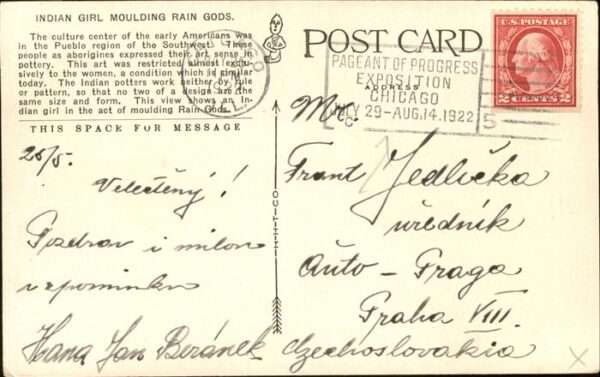 INDIAN GIRL MOULDING RAIN GODS.
The culture center of the early Americans was
in the Pueblo region of the Southwest. These
people as aborigines expressed their art sense in
pottery. This art was restricted almost exclu-
sively to the women, a condition which is similar
today. The Indian potters work neither by rule
or pattern, so that no two of a design are the
same size and form. This view shows an In-
dian girl in the act of moulding Rain Gods.
THIS SPACE FOR MESSAGE
25/5.
Velectěný!
Pozdrav i milou
vzpomínku
Hana Jan Beránek
H-H-T-CO
POST CARD
ADDRESS
U.S. POSTAGE
2 CENTS 2
CHICAGO
PAGEANT OF PROGRESS
EXPOSITION
CHICAGO
JULY 29-AUG. 14. 1922
5
Mr.
Frant Jedlička
úředník
Auto - Praga
Praha VIII.
Czechoslovakia
X